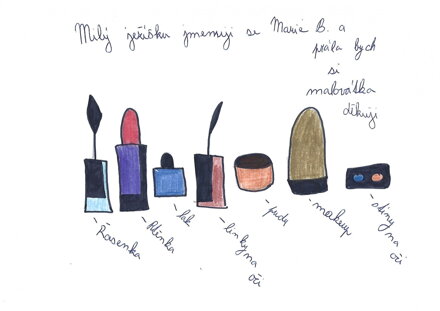 Milý ježíšku jmenuji se Marie B. a
přála bych
si
malovátka
děkuji
- Řasenka
- Rtěnka
- lak
- linky na
oči
- pudr
- makeup
- stíny na
oči